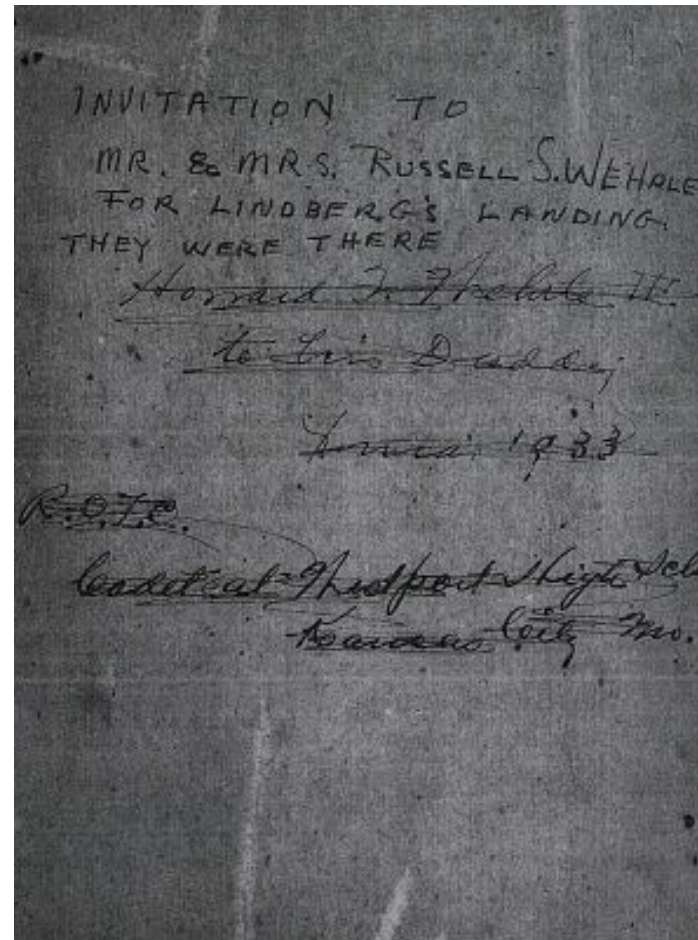 INVITATION TO
MR. & MRS. RUSSELL S. WEHRLE
FOR LINDBERG'S LANDING.
THEY WERE THERE
Howard F. Wehrle III
to his Daddy
1933
R.O.T.C.
Cadet at Westport High Scho
Kansas City Mo.